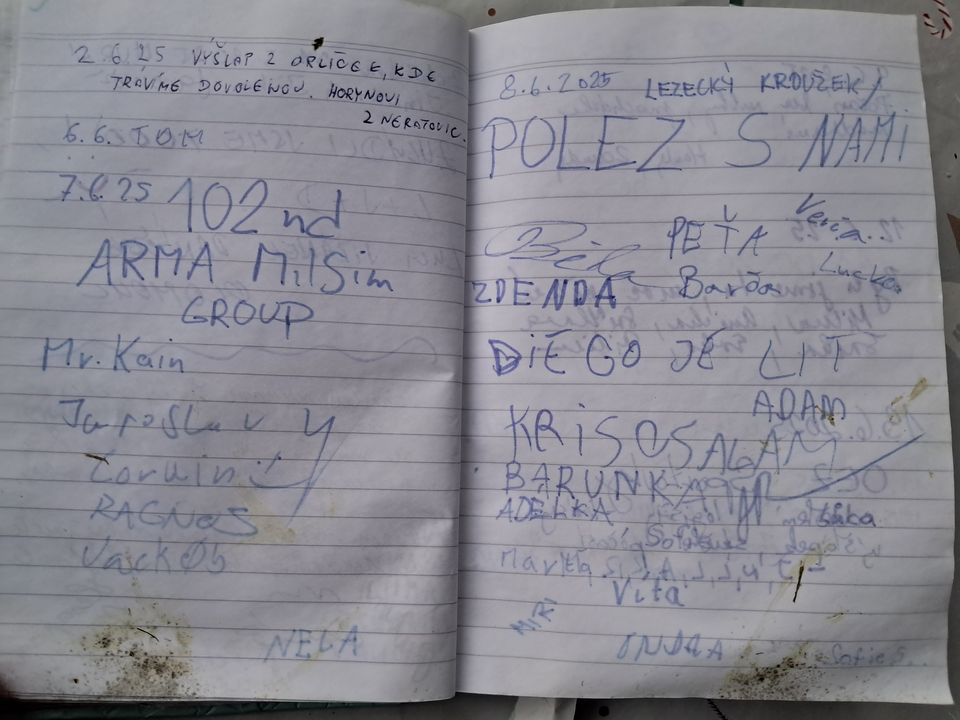 2.6.25 VÝŠLAP Z ORLIČEK, KDE
TRÁVÍME DOVOLENOU. HORYNOVI
Z NERATOVIC.
6.6. TOM
7.6.25 102nd
ARMA MilSim
GROUP
Mr. Kain
Jaroslav
Corwin
RAGNOS
NELA
8.6.2025 LEZECKÝ KROUŽEK
POLEZ S NÁMI
PEŤA
ZDENDA Barča Lucka
DiEGO JE LIT
ADAM
KRiSOSALAM
BARUNKA
ADÉLKA
Víťa
MIRI
ONDRA
Sofie S.